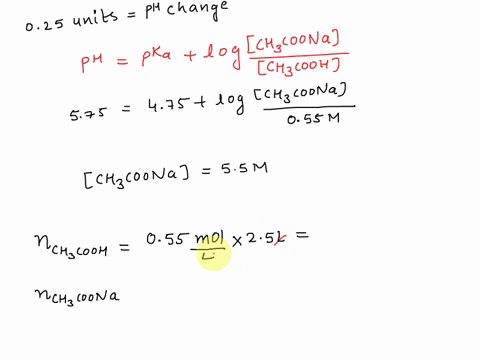 0.25 units = pH change
pH = pKa + log [CH3COONa] / [CH3COOH]
5.75 = 4.75 + log [CH3COONa] / 0.55 M
[CH3COONa] = 5.5 M
nCH3COOH = 0.55 mol / L × 2.5L =
nCH3COONa